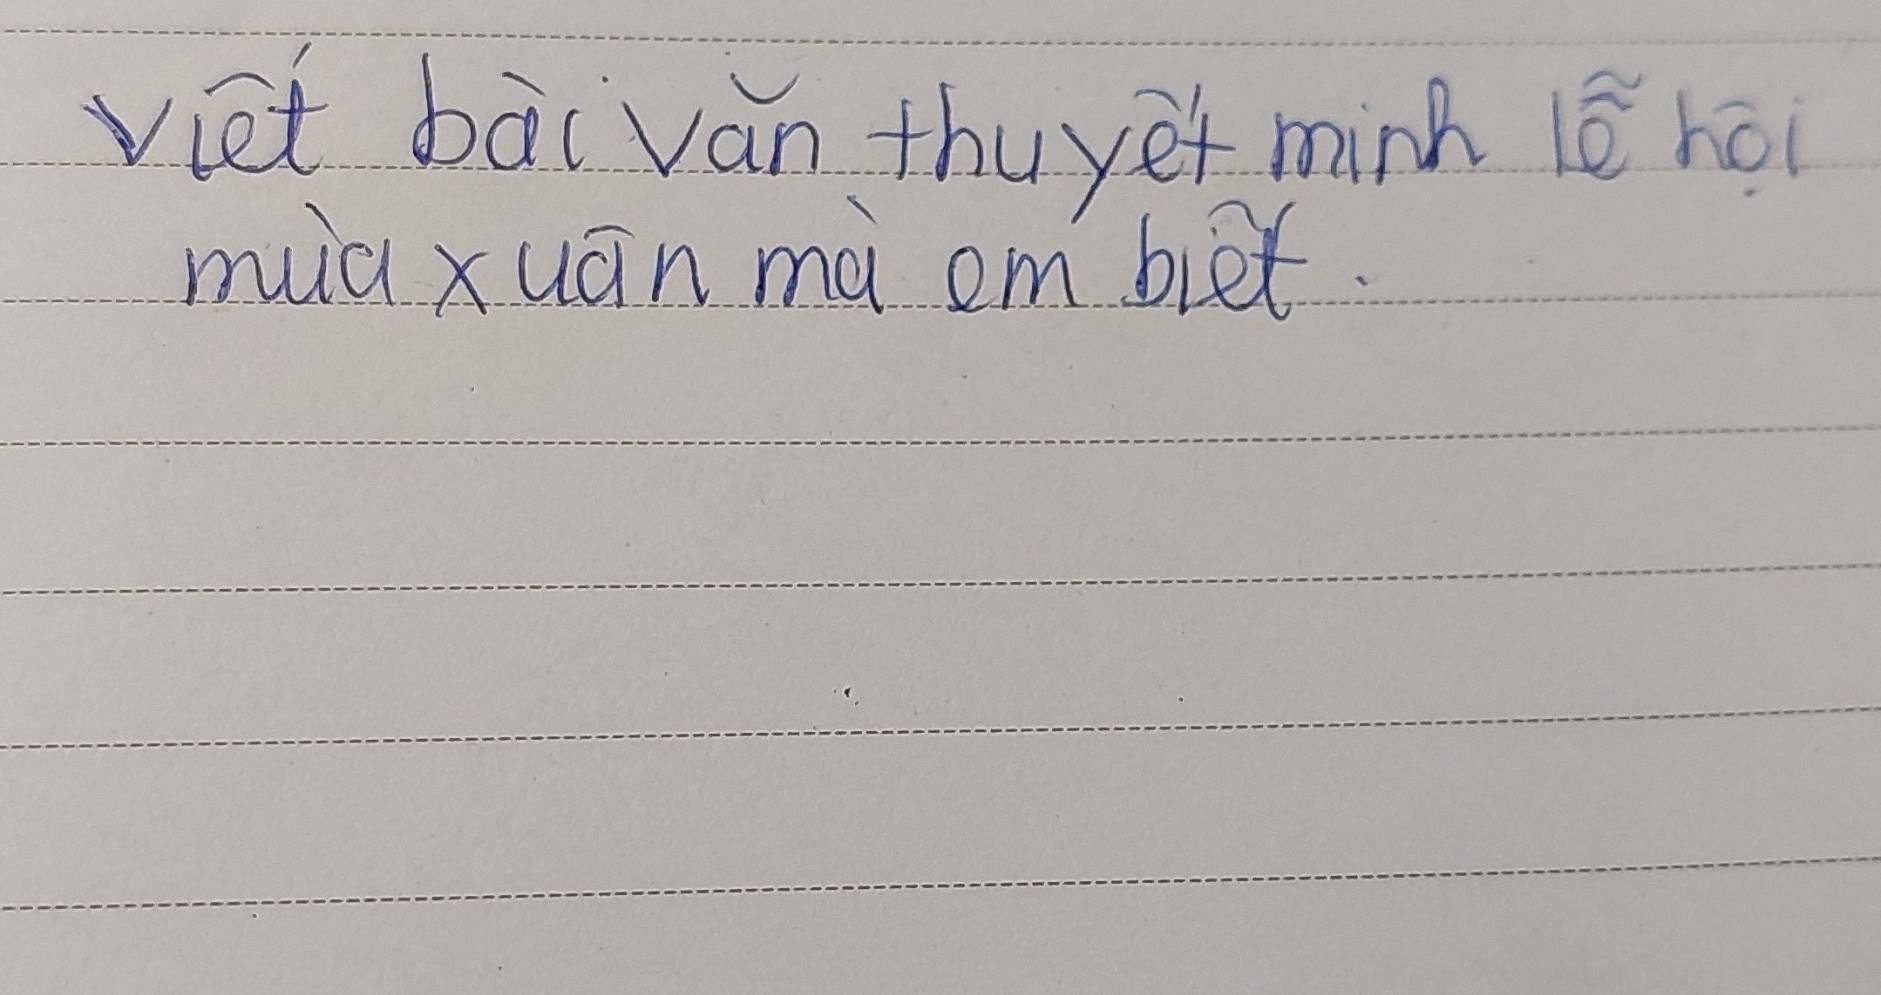 viết bài văn thuyết minh lễ hội
mùa xuân mà em biết.